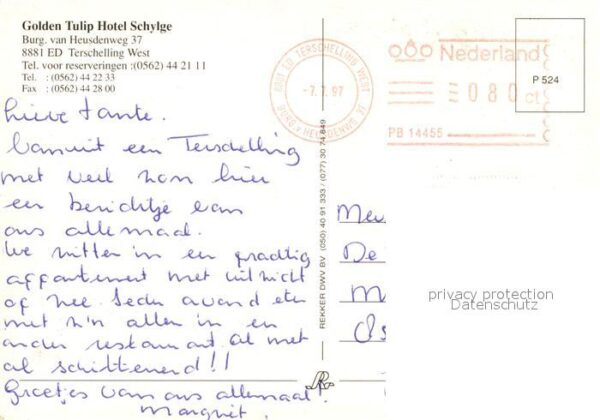 Golden Tulip Hotel Schylge
Burg. van Heusdenweg 37
8881 ED  Terschelling West
Tel. voor reserveringen :(0562) 44 21 11
Tel.    : (0562) 44 22 33
Fax    : (0562) 44 28 00
Lieve tante.
Vanuit een Terschelling
met veel zon hier
een berichtje van
ons allemaal.
We zitten in een prachtig
appartement met uitzicht
op zee. Ieder avond eten
met z'n allen in een
ander restaurant. Al met
al schitterend!!
Groetjes van ons allemaal!
Margriet.
REKKER DWV BV (050) 40 91 333 / (077) 30 74 849
8881 ED TERSCHELLING WEST
-7.7.97
BURG. v HEUSDENWG 37
Nederland
080 ct
PB 14455
P 524
Mev
De
M
Os
privacy protection
Datenschutz